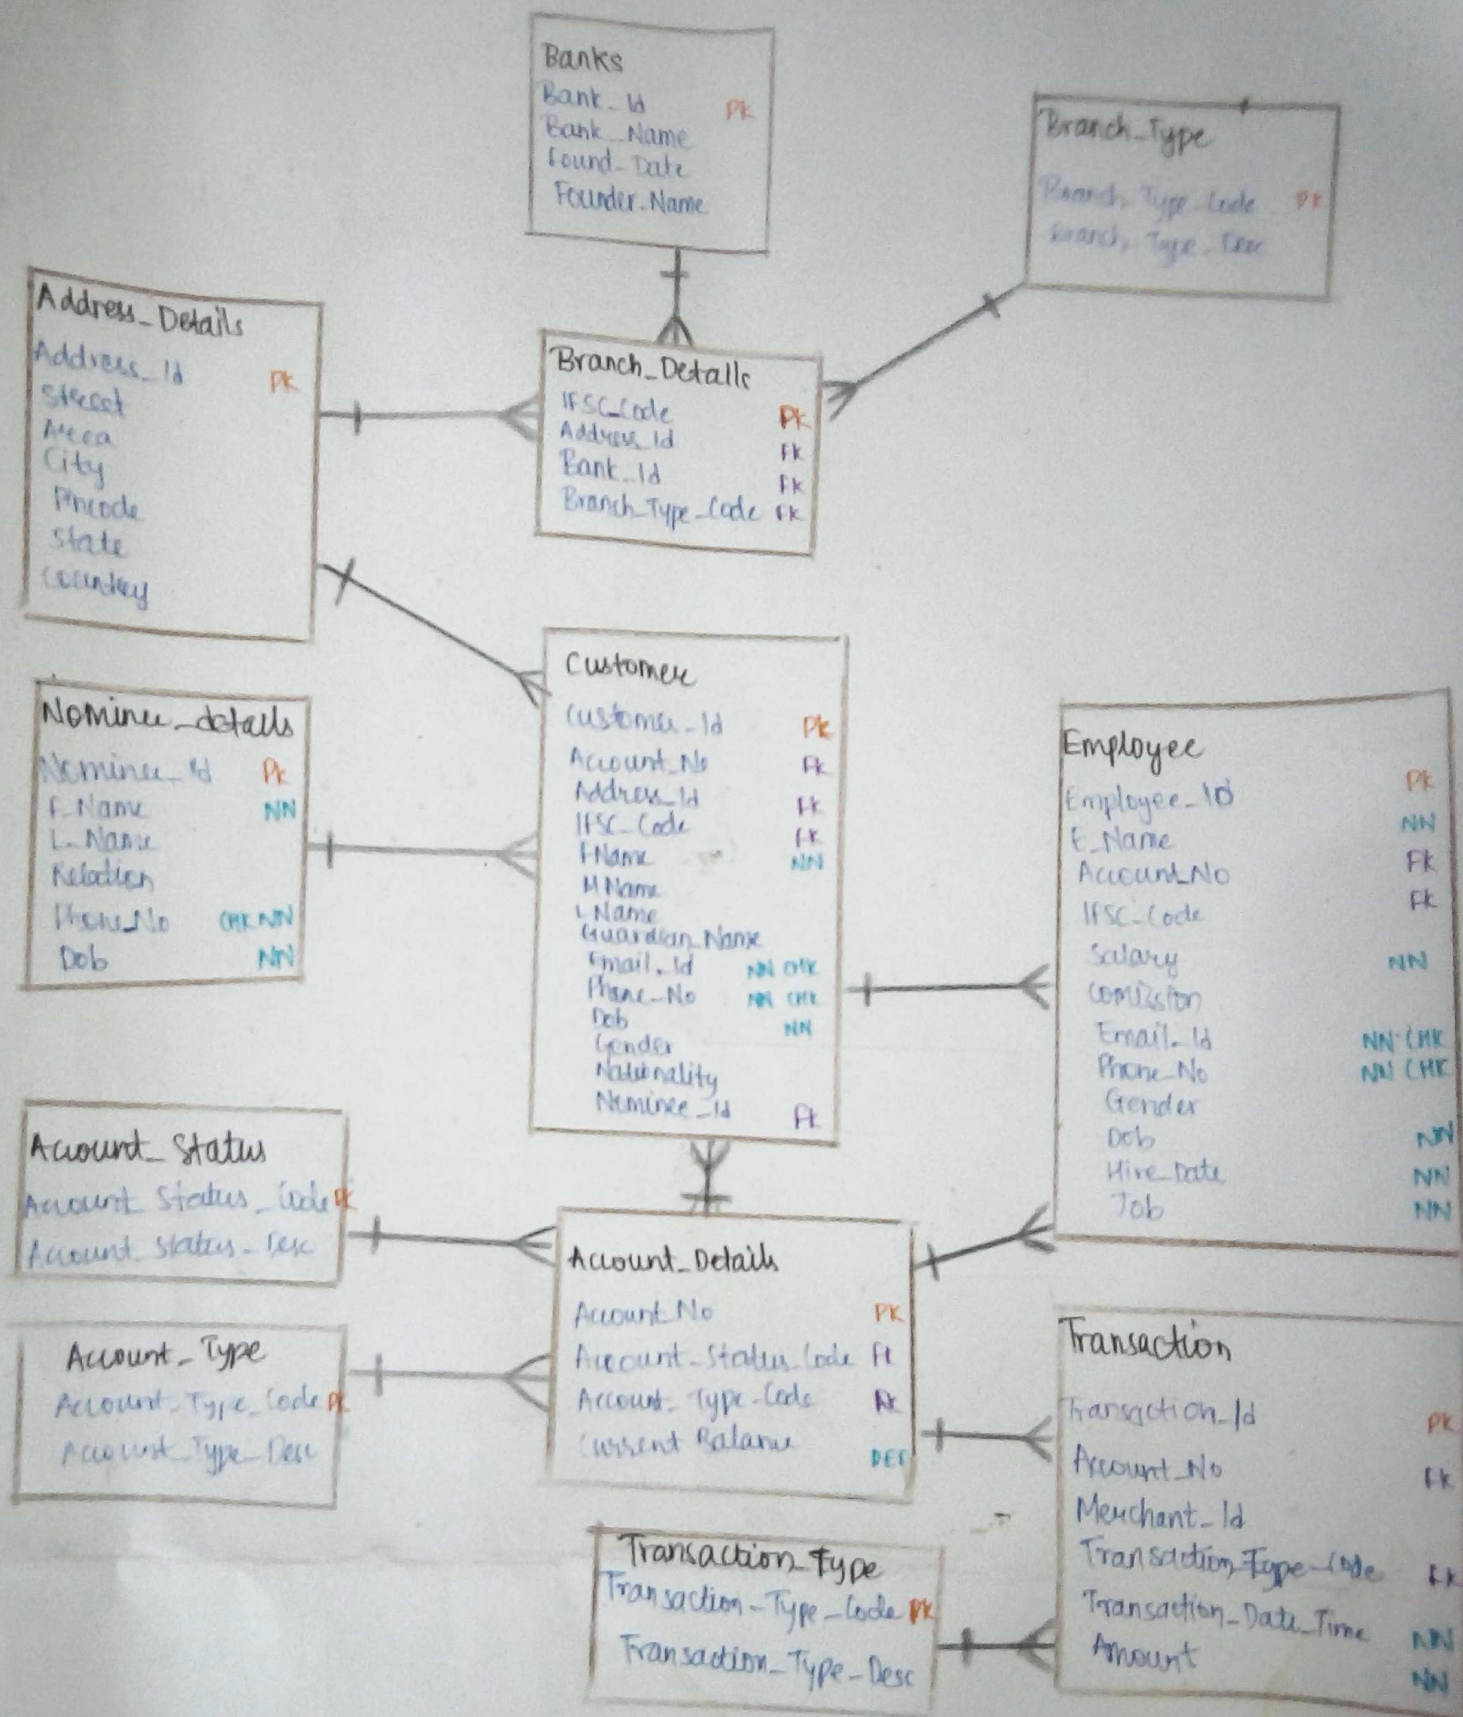 Banks
Bank_Id PK
Bank_Name
Found_Date
Founder_Name
Branch_Type
Branch_Type_Code PK
Branch_Type_Desc
Address_Details
Address_Id PK
Street
Area
City
Pincode
State
Country
Branch_Details
IFSC_Code PK
Address_Id FK
Bank_Id FK
Branch_Type_Code FK
Nominee_details
Nominee_Id PK
F_Name NN
L_Name
Relation
Phone_No CHK NN
Dob NN
Customer
Customer_Id PK
Account_No FK
Address_Id FK
IFSC_Code FK
FName NN
MName
LName
Guardian_Name
Email_Id NN CHK
Phone_No NN CHK
Dob NN
Gender
Nationality
Nominee_Id FK
Employee
Employee_ID PK
E_Name NN
Account_No FK
IFSC_Code FK
Salary NN
Comission
Email_Id NN CHK
Phone_No NN CHK
Gender
Dob NN
Hire_Date NN
Job NN
Account_Status
Account_Status_Code PK
Account_Status_Desc
Account_Type
Account_Type_Code PK
Account_Type_Desc
Account_Details
Account_No PK
Account_Status_Code FK
Account_Type_Code FK
Current Balance DEF
Transaction_Type
Transaction_Type_Code PK
Transaction_Type_Desc
Transaction
Transaction_Id PK
Account_No FK
Merchant_Id
Transaction_Type_Code FK
Transaction_Date_Time NN
Amount NN